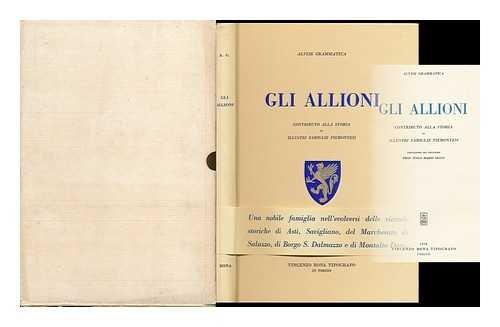 A. G.
GLI
ALLIONI
BONA
ALVISE GRAMMATICA
GLI ALLIONI
CONTRIBUTO ALLA STORIA
DI
ILLUSTRI FAMIGLIE PIEMONTESI
Una nobile famiglia nell'evolversi delle vicende
storiche di Asti, Savigliano, del Marchesato di
Saluzzo, di Borgo S. Dalmazzo e di Montalto
VINCENZO BONA TIPOGRAFO
IN TORINO
ALVISE GRAMMATICA
GLI ALLIONI
CONTRIBUTO ALLA STORIA
DI
ILLUSTRI FAMIGLIE PIEMONTESI
VINCENZO BONA TIPOGRAFO
TORINO